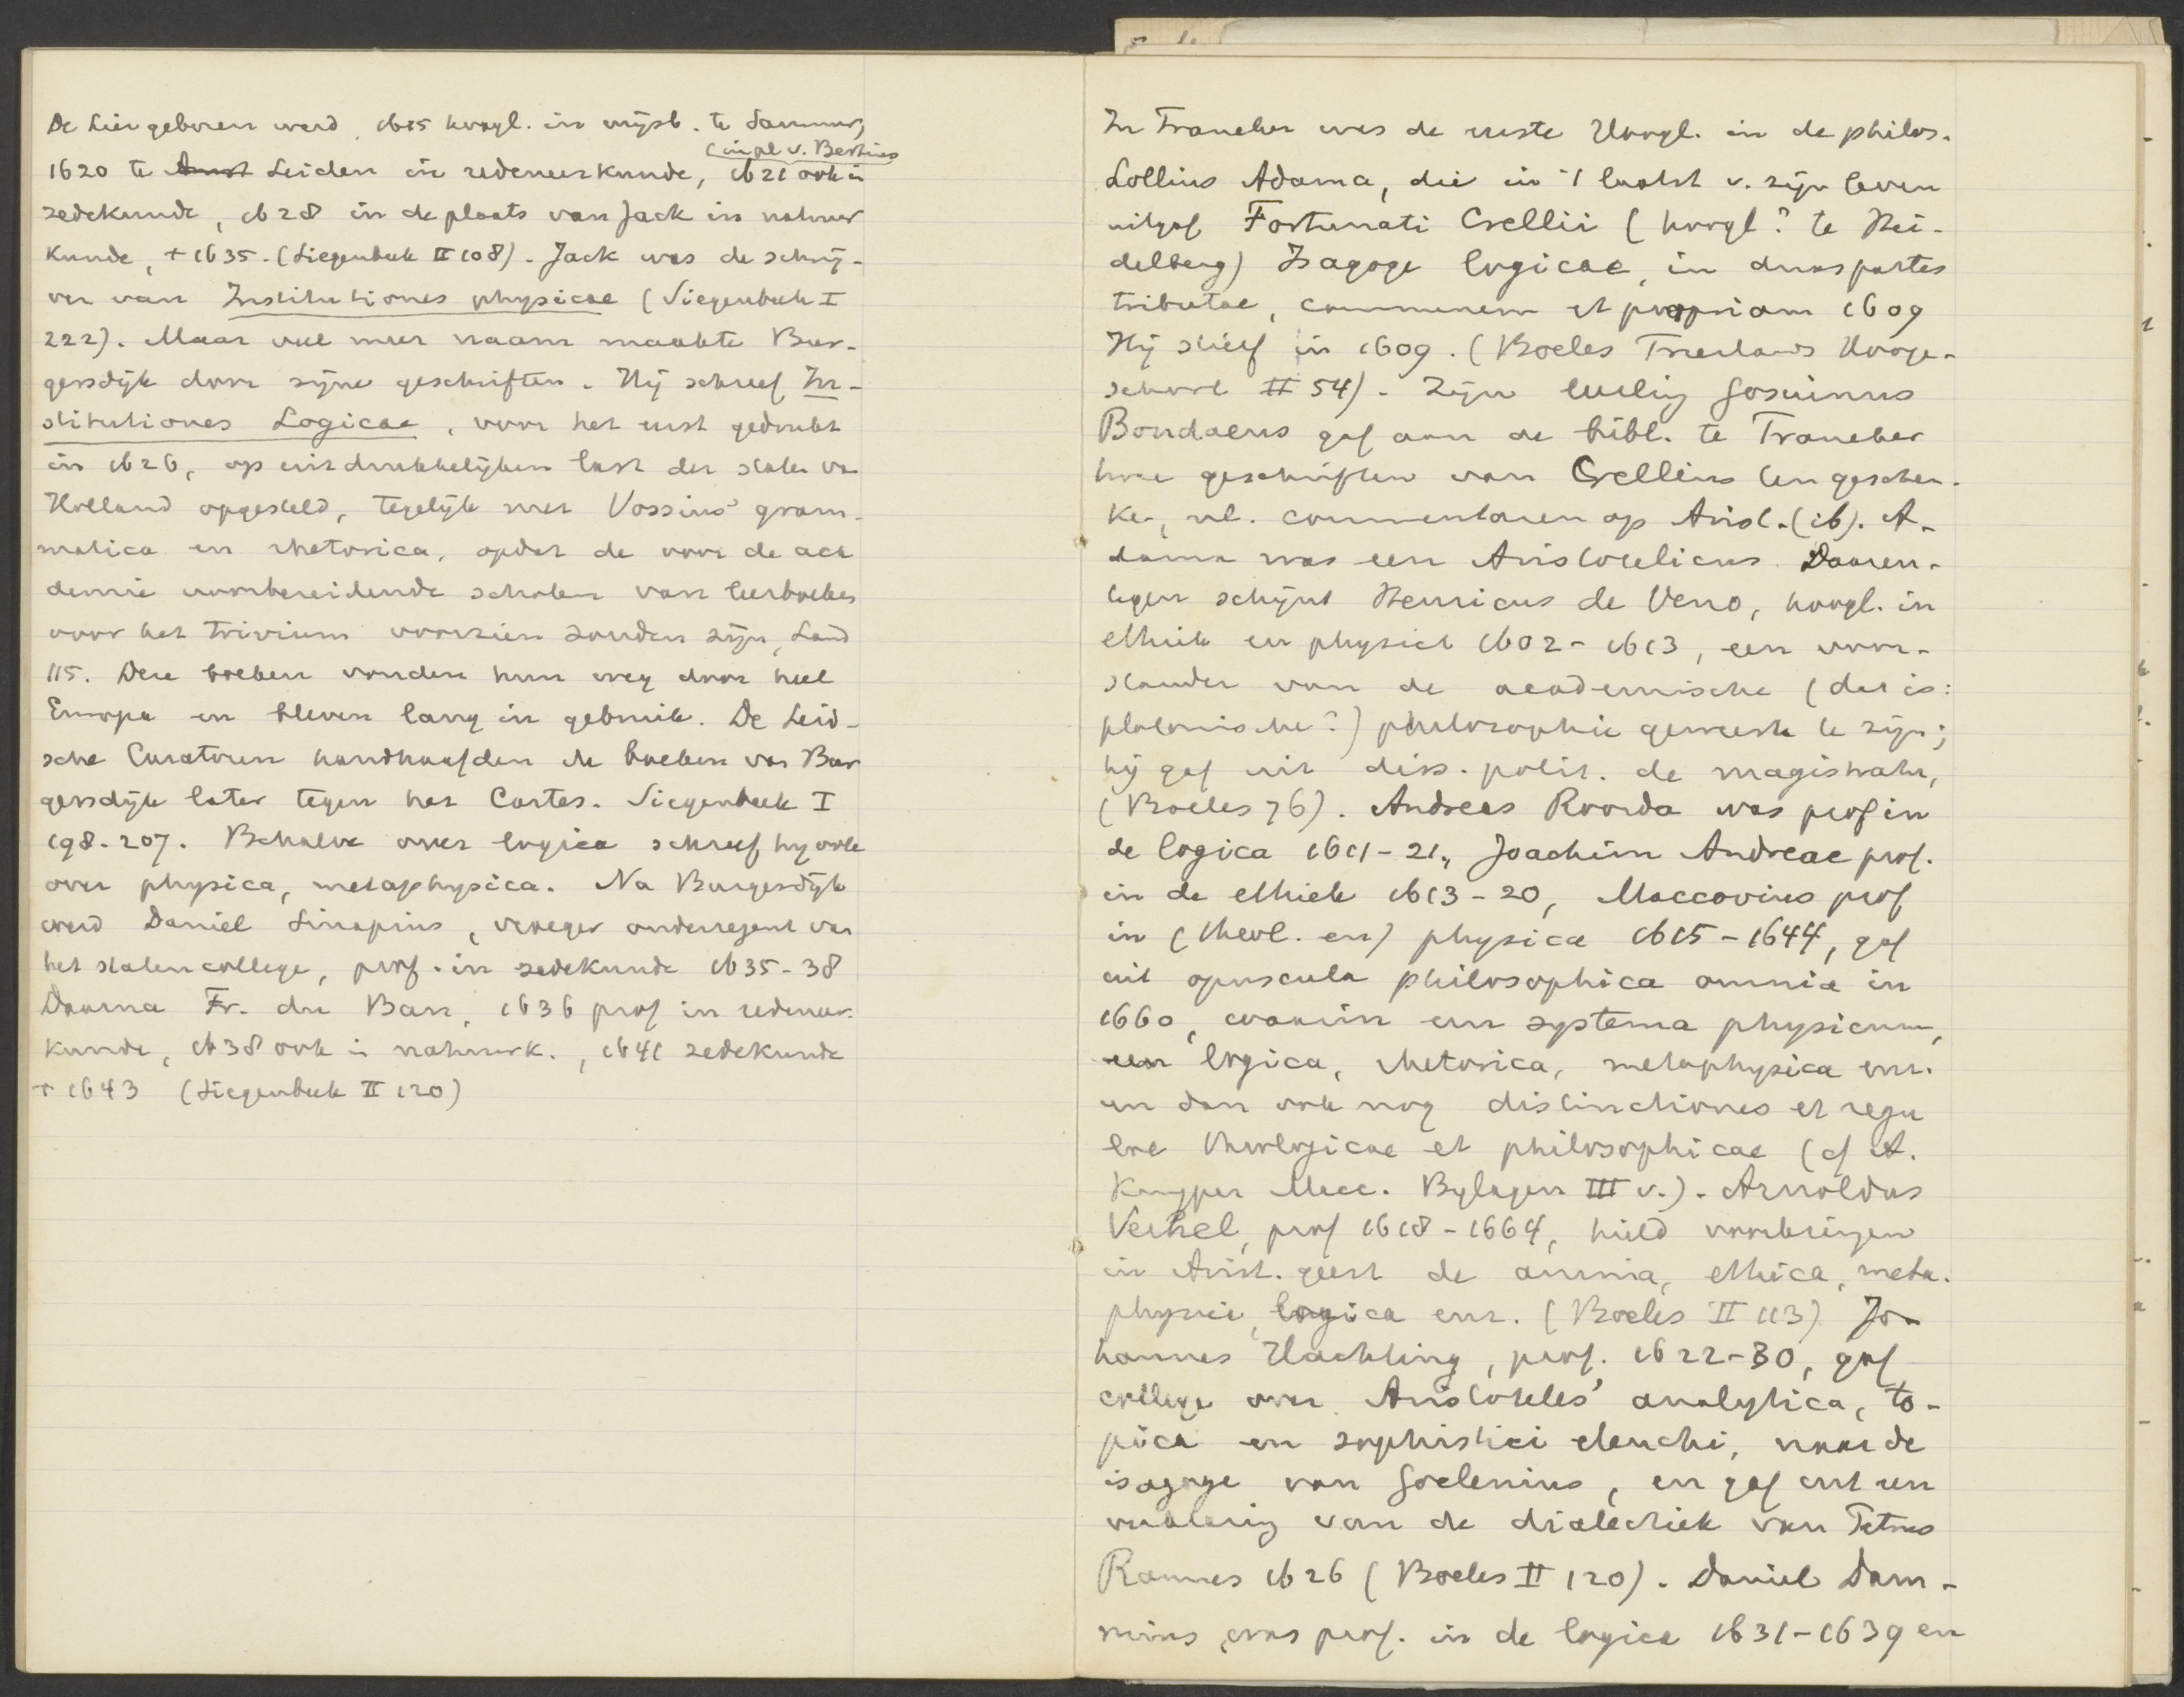 De Lier geboren werd, 1615 hoogl. in wijsb. te Saumur,
(in pl v. Bertius
1620 te Amst Leiden in redeneerkunde, 1621 ook in
zedekunde, 1628 in de plaats van Jack in natuur
kunde, + 1635. (Siegenbeek II 108). Jack was de schrij-
ver van Institutiones physicae (Siegenbeek I
222). Maar veel meer naam maakte Bur-
gersdijk door zijne geschriften. Hij schreef In-
stitutiones Logicae, voor het eerst gedrukt
in 1626, op uitdrukkelijken last der staten van
Holland opgesteld, tegelijk met Vossius' gram-
matica en rhetorica, opdat de voor de aca
demie voorbereidende scholen van leerboeken
voor het trivium voorzien zouden zijn, Land
115. Deze boeken vonden hun weg door heel
Europa en bleven lang in gebruik. De Leid-
sche Curatoren handhaafden de boeken van Bur
gersdijk later tegen het Cartes. Siegenbeek I
198. 207. Behalve over logica schreef hij ook
over physica, metaphysica. Na Burgersdijk
werd Daniel Sinapius, vroeger onderregent van
het statencollege, prof. in zedekunde 1635-38
Daarna Fr. du Ban, 1636 prof in redeneer-
kunde, 1638 ook in natuurk., 1641 zedekunde
+ 1643 (Siegenbeek II 120)
In Franeker was de eerste Hoogl. in de philos.
Lollius Adama, die in 't laatst v. zijn leven
uitgaf Fortunati Crellii (hoogl? te Hei-
delberg) Isagoge logicae, in duas partes
tributae, communem et propriam 1609
Hij stierf in 1609. (Boeles Frieslands Hooge-
school II 54). Zijn leerling Gosuinus
Bondaeus gaf aan de bibl. te Franeker
twee geschriften van Crellius ten geschen-
ke, nl. commentaren op Arist. (ib). A-
dama was een Aristotelicus. Daaren-
tegen schijnt Henricus de Veno, hoogl. in
ethiek en physica 1602-1613, een voor-
stander van de academische (dat is:
platonische?) philosophie geweest te zijn;
hij gaf uit diss. polit. de magistratu,
(Boeles 76). Andreas Roorda was prof in
de logica 1611-21, Joachim Andreae prof.
in de ethiek 1613-20, Maccovius prof
in (theol. en) physica 1615-1644, gaf
uit opuscula philosophica omnia in
1660, waarin een systema physicum,
een logica, rhetorica, metaphysica enz.
en dan ook nog distinctiones et regu
lae theologicae et philosophicae (cf A.
Kuyper Macc. Bylagen III v.). Arnoldus
Verhel, prof 1618-1664, hield voorlezingen
in Arist. geest de anima, ethica, meta-
physica, logica enz. (Boeles II 113) Jo-
hannes Hachting, prof. 1622-30, gaf
college over Aristoteles' analytica, to-
pica en sophistici elenchi, naar de
isagoge van Goclenius, en gaf uit een
verklaring van de dialectiek van Petrus
Ramus 1626 (Boeles II 120). Daniel Dam-
nius, was prof. in de logica 1631-1639 en